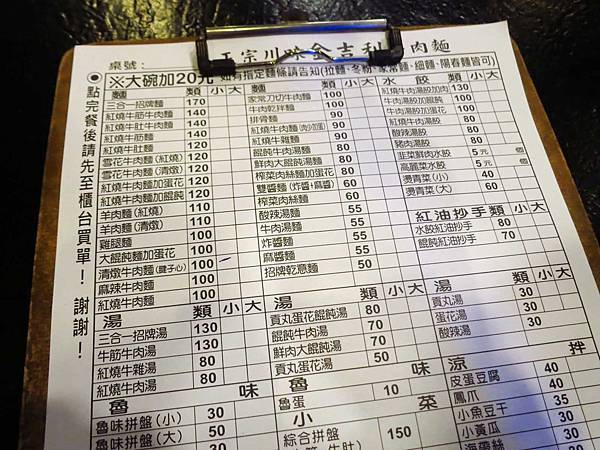 桌號:
正宗川味金吉利牛肉麵
※大碗加20元 如有指定麵條請告知(拉麵、冬粉、家常麵、細麵、陽春麵皆可)
●點完餐後請先至櫃台買單!謝謝!
麵 類 小 大
三合一招牌麵 170
紅燒牛筋牛肉麵 140
紅燒牛肚牛肉麵 140
紅燒牛筋麵 140
紅燒牛肚麵 120
雪花牛肉麵(紅燒) 120
雪花牛肉麵(清燉) 120
紅燒牛肉麵加蛋花 120
紅燒牛肉麵加餛飩 120
羊肉麵(紅燒) 110
羊肉麵(清燉) 110
雞腿麵 100
大餛飩麵加蛋花 100
清燉牛肉麵(腱子心) 100
麻辣牛肉麵 100
紅燒牛肉麵 100
麵 類 小 大
家常刀切牛肉麵 100
牛肉乾拌麵 100
排骨麵 90
紅燒牛肉麵(肉少加蛋) 90
紅燒牛雜麵 90
餛飩牛肉湯麵 80
鮮肉大餛飩湯麵 80
榨菜肉絲麵加蛋花 80
雙醬麵(炸醬+麻醬) 60
榨菜肉絲麵 55
酸辣湯麵 55
牛肉湯麵 55
炸醬麵 55
麻醬麵 55
招牌乾意麵 50
水 餃 類 小 大
紅燒牛肉湯餃加肉 130
牛肉湯餃加餛飩 100
牛肉湯餃加蛋花 100
紅燒牛肉湯餃 90
酸辣湯餃 80
豬肉湯餃 80
韭菜鮮肉水餃 5元 個
高麗菜水餃 5元 個
燙青菜(小) 40
燙青菜(大) 60
紅油抄手類 小 大
水餃紅油抄手 80
餛飩紅油抄手 70
湯 類 小 大
三合一招牌湯 130
牛筋牛肉湯 130
紅燒牛雜湯 80
紅燒牛肉湯 80
湯 類 小 大
貢丸蛋花餛飩湯 80
餛飩牛肉湯 70
鮮肉大餛飩湯 70
貢丸蛋花湯 50
湯 類 小 大
貢丸湯 30
蛋花湯 30
酸辣湯 30
魯 味
魯味拼盤(小) 30
魯味拼盤(大) 50
魯 味
魯蛋 10
小 菜
綜合拼盤 150
涼 拌
皮蛋豆腐 40
鳳爪 40
小魚豆干 35
小黃瓜 30
海帶絲 30